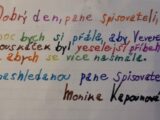 Dobrý den, pane spisovateli,
moc bych si přála, aby Vever
ouskáček byl veselejší příběh
abych se více nasmála.
nashledanou pane spisovate
Monika Kapounova